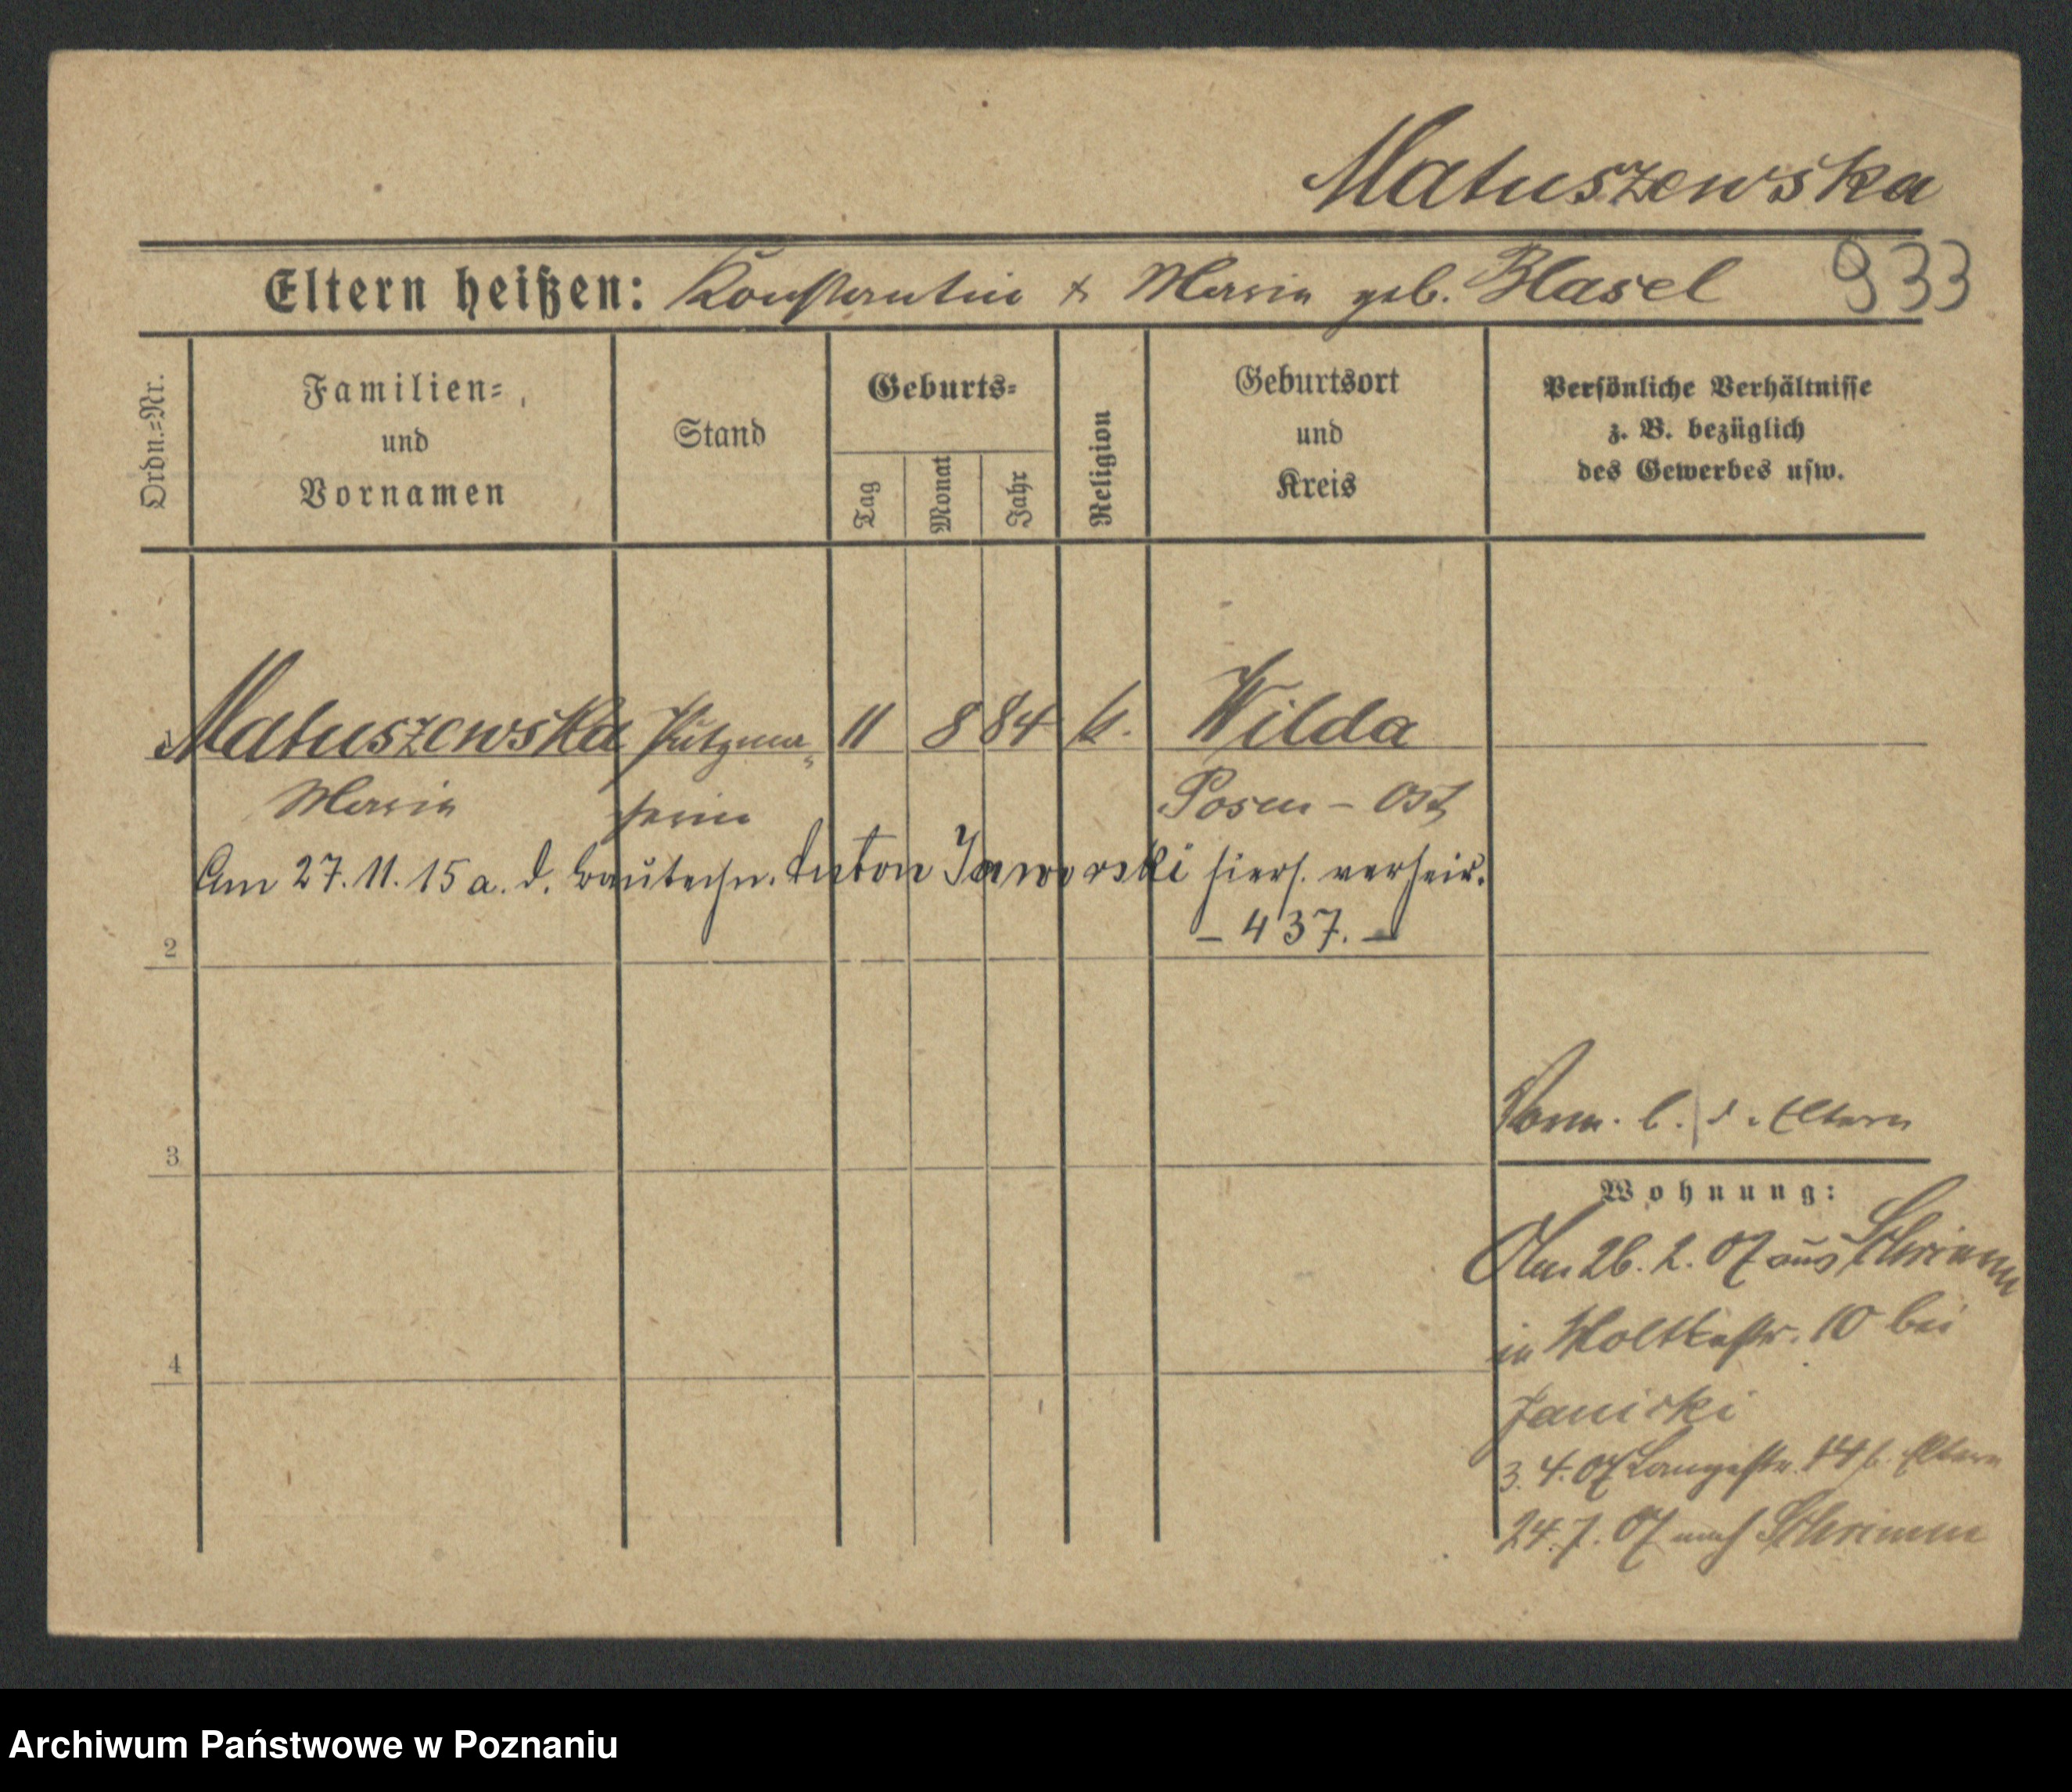 Matuszewska
Eltern heißen: Konstantin & Maria geb. Blasel 933
Ordn.=Nr.
Familien=
und
Vornamen
Stand
Geburts=
Tag
Monat
Jahr
Religion
Geburtsort
und
Kreis
Persönliche Verhältnisse
z. B. bezüglich
des Gewerbes usw.
Matuszewska Putzma„ 11 8 84 k. Wilda
Maria cherin Posen - Ost
Am 27.11.15 a. d. Bautechn. Anton Jaworski hiers. verheir.
- 437. -
2
3
4
b. d. Eltern
Wohnung:
Am 26. 2. 07 aus Schrimm
in Moltkestr. 10 bei
Janicki
3. 4. 07 Langestr. 14 b. Eltern
24. 7. 07 nach Schrimm
Archiwum Państwowe w Poznaniu